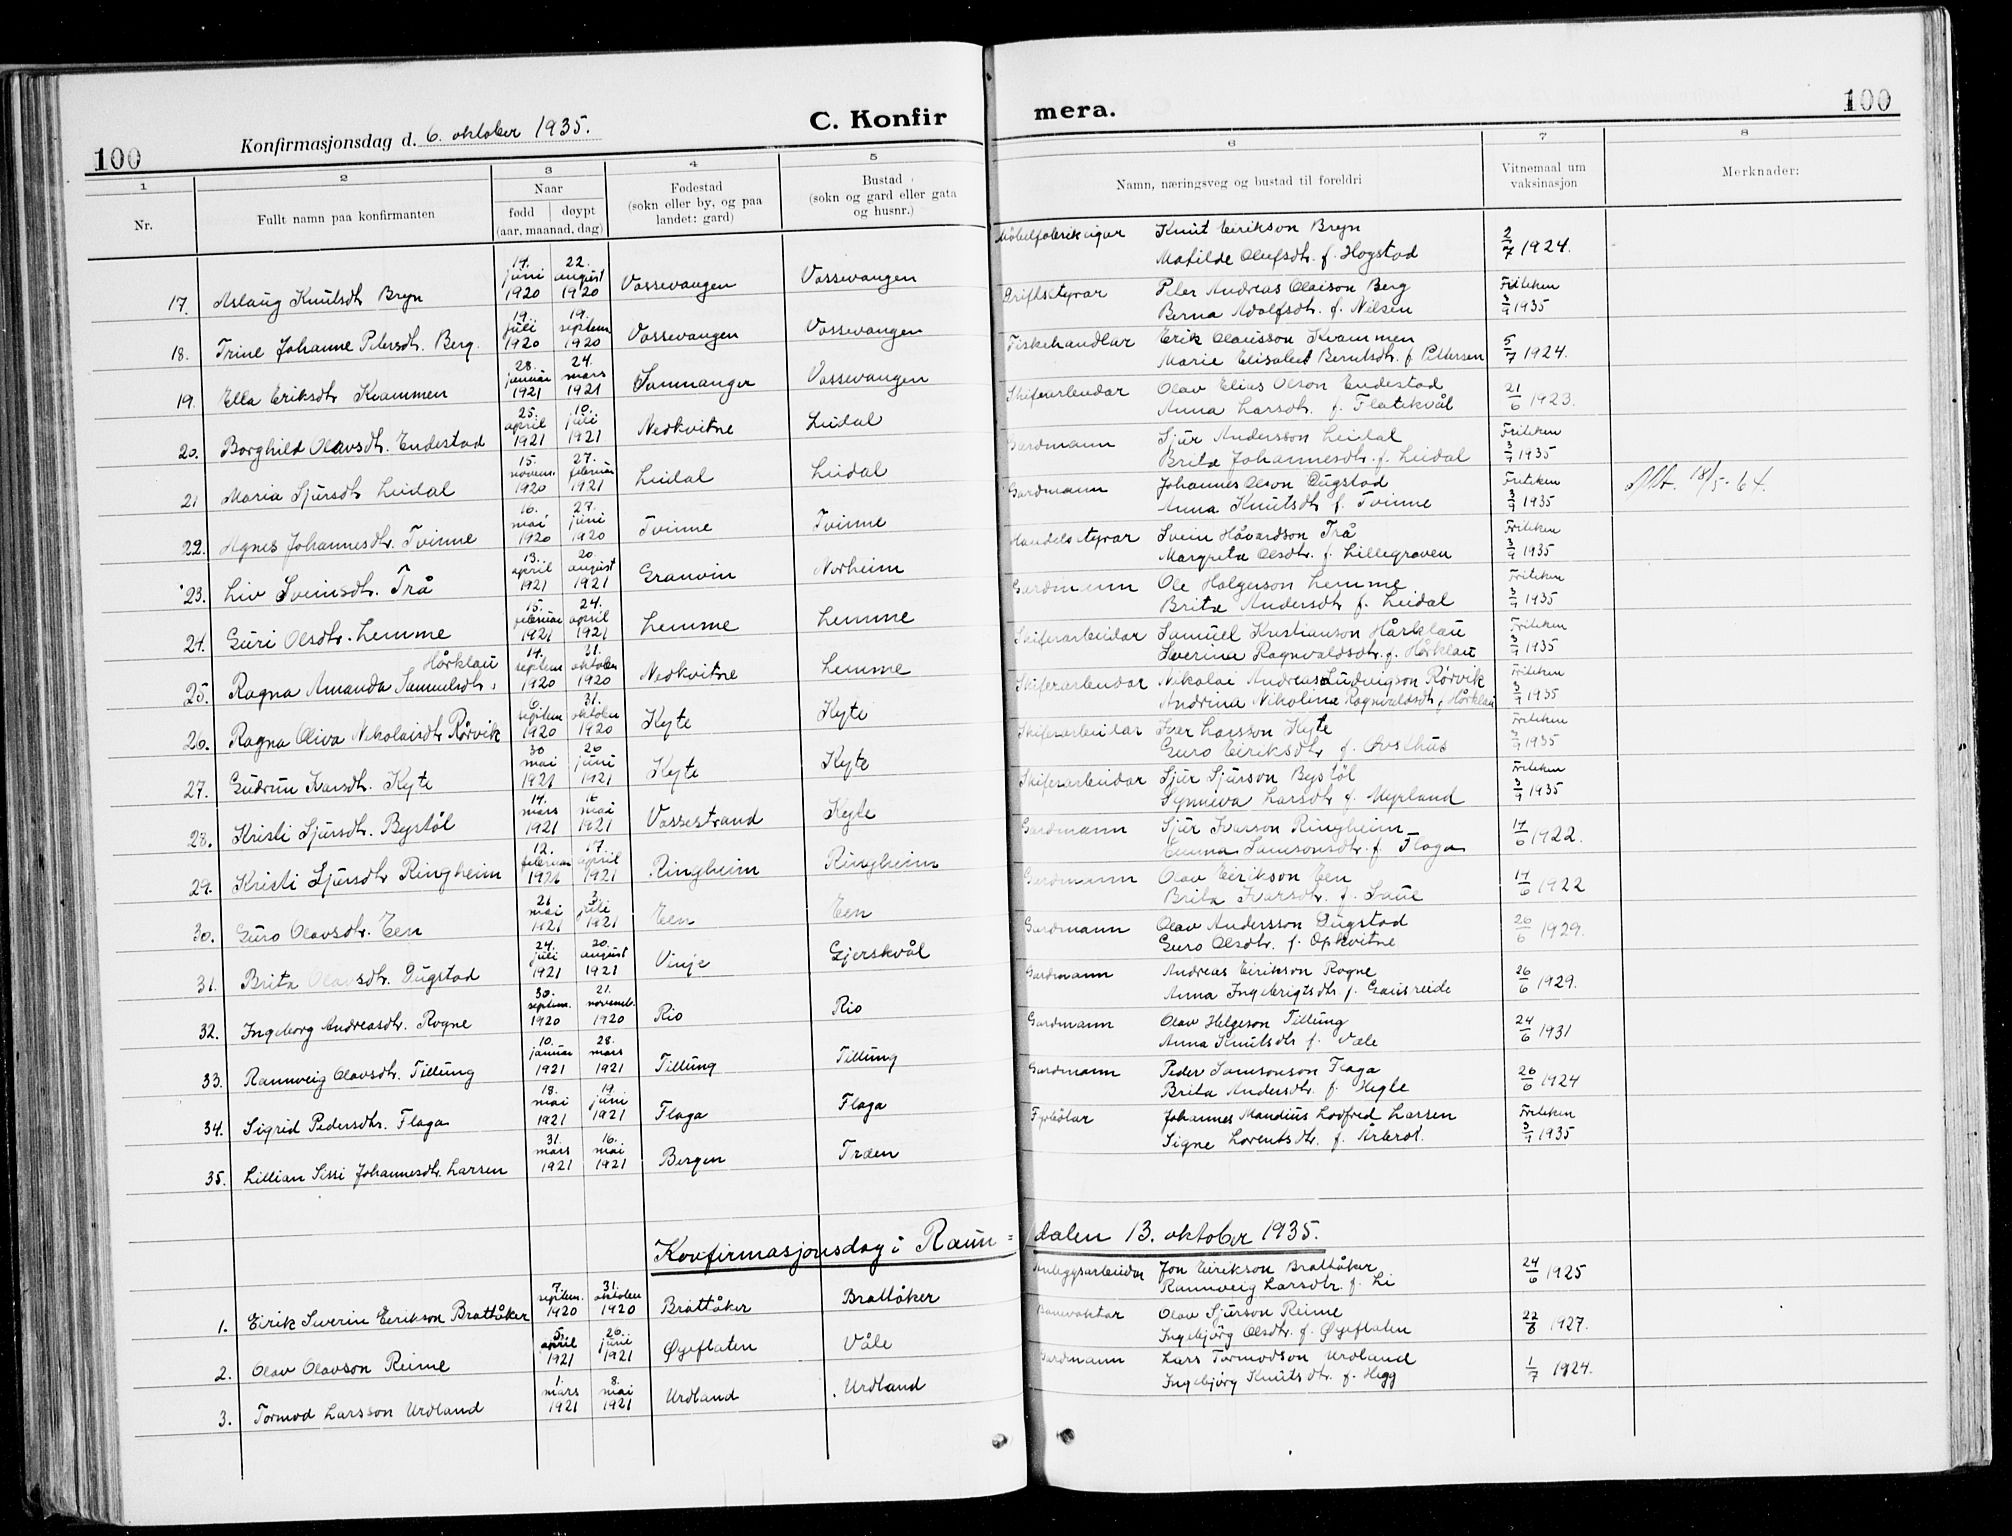 100
Konfirmasjonsdag d. 6. oktober 1935.
C. Konfirmera.
100
1 2 3 4 5 6 7 8
Nr.
Fullt namn paa konfirmanten
Naar
fødd | døypt
(aar, maanad, dag)
Fødestad
(sokn eller by, og paa landet: gard)
Bustad
(sokn og gard eller gata og husnr.)
Namn, næringsveg og bustad til foreldri
Vitnemaal um vaksinasjon
Merknader:
17. Aslaug Knutsdtr Bryn 14. juni 1920 22. august 1920 Vossevangen Vossevangen Møbelfabrikeigar Knut Eirikson Bryn
Matilde Olufsdtr. f. Hogstad 2/7 1924.
18. Trine Johanne Petersdtr. Berg. 19. juli 1920 19. septem 1920 Vossevangen Vossevangen Driftsstyrar Peter Andreas Olaison Berg
Berna Adolfsdtr. f. Nielsen Friteken 3/9 1935
19. Ella Eriksdtr Kvammen 28. januar 1921 24. mars 1921 Samnanger Vossevangen Fiskehandlar Erik Olausson Kvammen
Marie Elisabet Berntsdtr. f. Pettersen 5/7 1924.
20. Borghild Olavsdtr. Endestad 25. april 1921 10. juli 1921 Nedkvitne Leidal Skiferarbeidar Olav Elias Olson Endestad
Anna Larsdtr. f. Flatekvål 21/6 1923.
21 Maria Sjursdtr Leidal 15. novem. 1920 27. februar 1921 Leidal Leidal Gardmann Sjur Andersson Leidal
Brita Johannesdtr. f. Leidal Friteken 3/9 1935
22. Agnes Johannesdtr. Tvinne 16. mai 1920 27. juni 1920 Tvinne Tvinne Gardmann Johannes Olson Dugstad
Anna Knutsdtr f. Tvinne Friteken 3/9 1935 Att. 18/5-64.
23. Liv Sveinsdtr. Trå 13. april 1921 20. august 1921 Granvin Norheim Handelsstyrar Svein Håvardson Trå
Margreta Olsdtr. f. Lillegraven Friteken 3/9 1935
24. Guri Olsdtr. Lemme 15. februar 1921 24. april 1921 Lemme Lemme Gardmann Ole Holgerson Lemme
Brita Andersdtr f. Leidal Friteken 3/9 1935
25. Ragna Amanda Samuelsdtr. Hårklau 14. septem 1920 21. oktober 1920 Nedkvitne Lemme Skiferarbeidar Samuel Kristianson Hårklau
Severina Ragnvaldsdtr. f. Hårklau Friteken 3/9 1935
26. Ragna Oliva Nikolaisdtr Rørvik 6. septem 1920 31. oktober 1920 Kyte Kyte Skiferarbeidar Nikolai Andreas Ludvigson Rørvik
Andrina Nikolina Ragnvaldsdtr f. Hårklau Friteken 3/9 1935
27. Gudrun Ivarsdtr. Kyte 30 mai 1921 26 juni 1921 Kyte Kyte Skiferarbeidar Ivar Larsson Kyte
Guro Eiriksdtr f. Øvsthus Friteken 3/9 1935
28. Kristi Sjursdtr. Bystøl 14. mars 1921 16 mai 1921 Vossestrand Kyte Skiferarbeidar Sjur Sjurson Bystøl
Synneva Larsdtr f. Myrland Friteken 3/9 1935
29. Kristi Sjursdtr Ringheim 12. februar 1921 17. april 1921 Ringheim Ringheim Gardmann Sjur Ivarson Ringheim
Emma Samsonsdtr. f. Flaga 14/6 1922.
30. Guro Olavsdtr. Een 21 mai 1921 3. juli 1921 Een Een Gardmann Olav Eirikson Een
Brita Ivarsdtr. f. Saue 14/6 1922
31. Brita Olavsdtr. Dugstad 24. juli 1921 20. august 1921 Vinje Gjerskvål Gardmann Olav Andersson Dugstad
Guro Olsdtr. f. Opkvitne 26/6 1929.
32. Ingeborg Andreasdtr. Rogne 30. septem. 1920 21. novemb. 1920 Rio Rio Gardmann Andreas Eirikson Rogne
Anna Ingebrigtsdtr. f. Gausreide 26/6 1929.
33. Rannveig Olavsdtr. Tillung 10. januar 1921 28. mars 1921 Tillung Tillung Gardmann Olav Helgeson Tillung
Anna Knutsdtr f. Væle 24/6 1931
34. Sigrid Pedersdtr. Flaga 18. mai 1921 19. juni 1921 Flaga Flaga Gardmann Peder Samsonson Flaga
Brita Andersdtr. f. Hegle 26/6 1924
35. Lillian Sissi Johannesdtr. Larsen 31. mars 1921 16. mai 1921 Bergen Træen Fyrbøtar Johannes Mandius Lodfred Larsen
Signe Lorentsdtr. f. Årbrot. Friteken 3/9 1935
Konfirmasjonsdag i Raundalen 13. oktober 1935.
1. Eirik Severin Eirikson Brattåker 7 septem. 1920 31. oktober 1920 Brattåker Brattåker Anleggsarbeidar Jon Eirikson Brattåker
Rannveig Larsdtr. f. Li 24/6 1925
2. Olav Olavson Reime 5. april 1921 26. juni 1921 Øyeflaten Våle Banevaktar Olav Sjurson Reime
Ingebjørg Olsdtr. f. Øyeflaten 22/6 1927.
3. Tormod Larsson Urdland 1. mars 1921 8. mai 1921 Urdland Urdland Gardmann Lars Tormodson Urdland
Ingebjørg Knutsdtr. f. Hegg 1/7 1924.